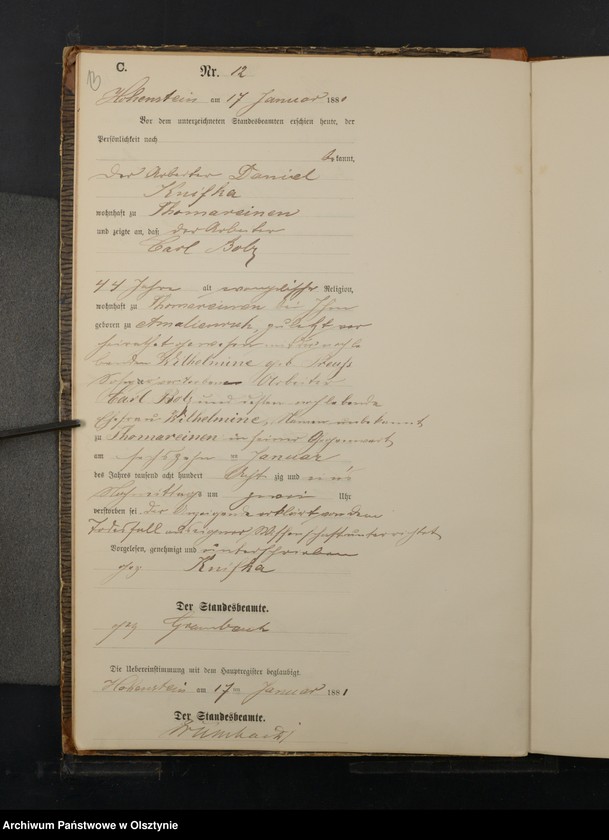 C.
Nr. 12
13
Hohenstein am 17 Januar 1881
Vor dem unterzeichneten Standesbeamten erschien heute, der
Persönlichkeit nach
bekannt,
der Arbeiter Daniel
Knifka
wohnhaft zu Thomareinen
und zeigte an, daß der Arbeiter
Carl Bolz
44 Jahre alt evangelischer Religion,
wohnhaft zu Thomareinen bei Ihm
geboren zu Amalienruh, zuletzt ver
heirathet gewesen mit noch le
benden Wilhelmine geb Preuß
Sohn des verstorbenen Arbeiter
Carl Bolz und dessen noch lebende
Ehefrau Wilhelmine, Namen unbekannt
zu Thomareinen in seiner Gegenwart
am sechszehn n Januar
des Jahres tausend acht hundert Acht zig und eins
Nachmittags um zwei Uhr
verstorben sei der Anzeigende erklärt, von dem
Todesfall aus eigener Wissenschaft unterrichtet
Vorgelesen, genehmigt und unterschrieben
gez Knifka
Der Standesbeamte.
gez
Die Uebereinstimmung mit dem Hauptregister beglaubigt.
Hohenstein am 17n Januar 1881
Der Standesbeamte.
Archiwum Państwowe w Olsztynie